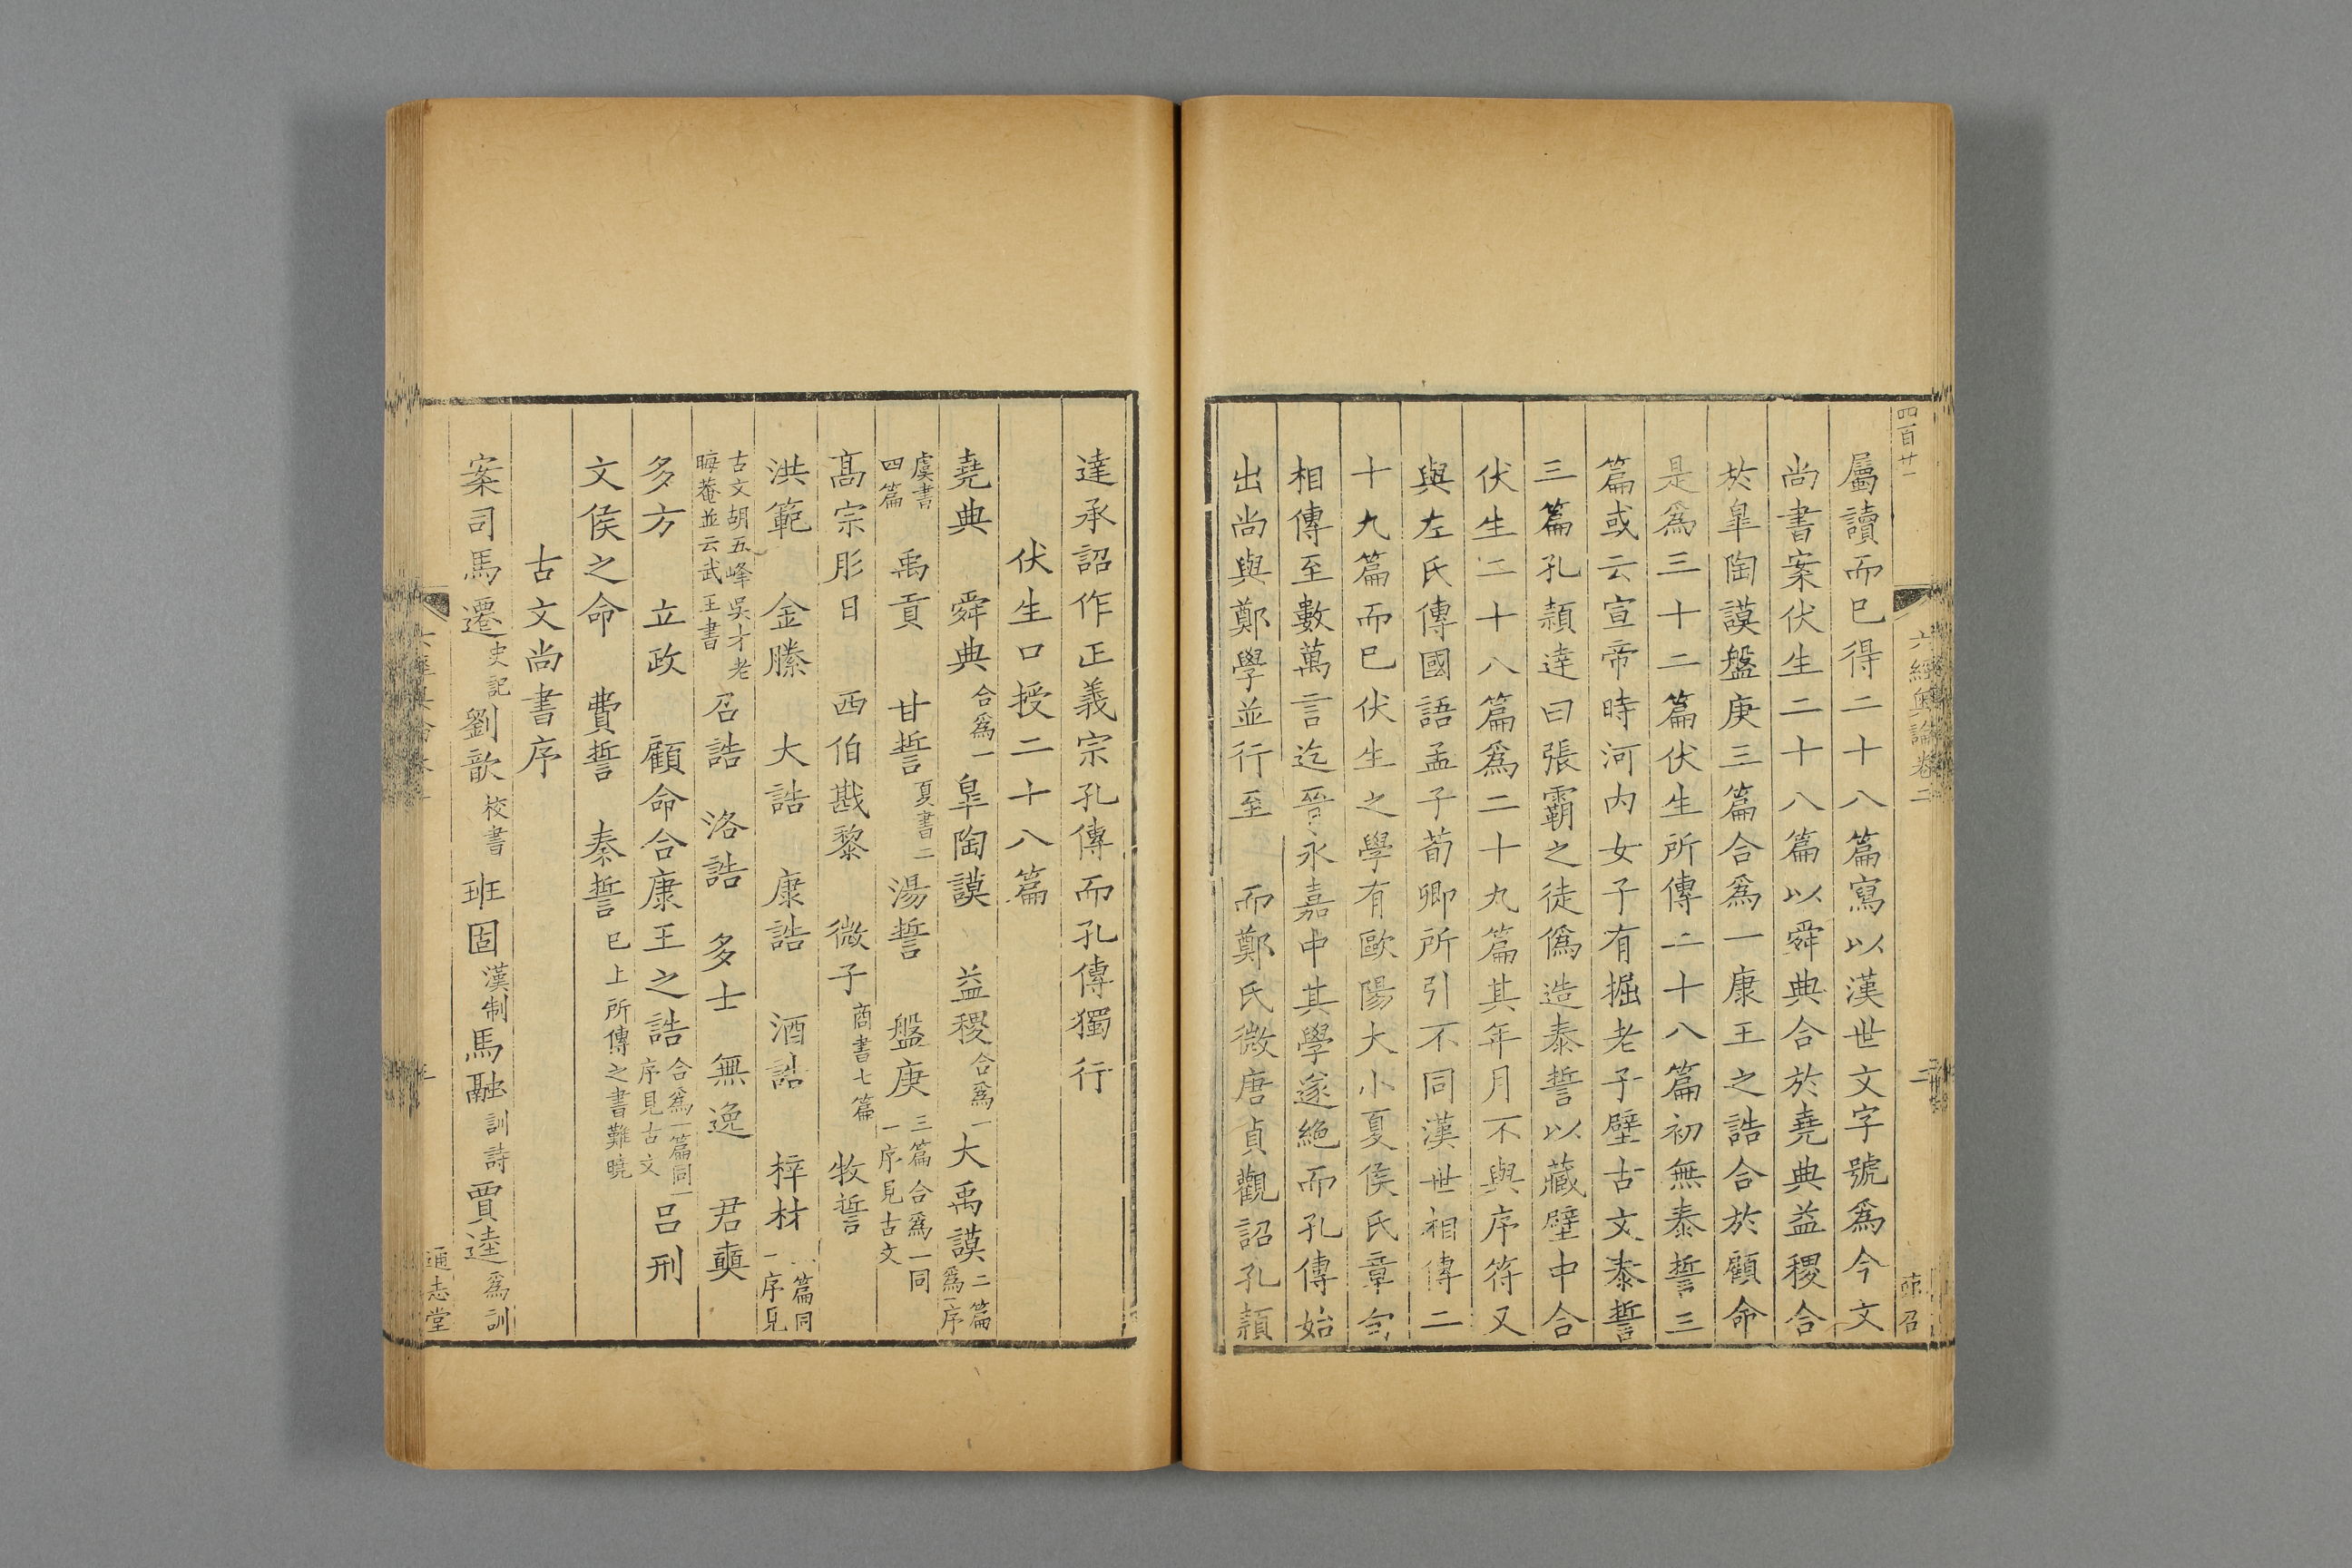 四百廿一
六經奧論卷二
二
屬讀而已得二十八篇寫以漢世文字號爲今文
尚書案伏生二十八篇以舜典合於堯典益稷合
於皐陶謨盤庚三篇合爲一康王之誥合於顧命
是爲三十二篇伏生所傳二十八篇初無泰誓三
篇或云宣帝時河内女子有掘老子壁古文泰誓
三篇孔穎達曰張霸之徒僞造泰誓以藏壁中合
伏生二十八篇爲二十九篇其年月不與序符又
與左氏傳國語孟子荀卿所引不同漢世相傳二
十九篇而已伏生之學有歐陽大小夏侯氏章句
相傳至數萬言迄晉永嘉中其學遂絕而孔傳始
出尚與鄭學並行至 而鄭氏微唐貞觀詔孔穎
達承詔作正義宗孔傳而孔傳獨行
伏生口授二十八篇
堯典 舜典合爲一皐陶謨 益稷合爲一大禹謨二篇爲一序
虞書四篇 禹貢 甘誓夏書二 湯誓 盤庚三篇合爲一同一序見古文
髙宗肜日 西伯戡黎 微子商書七篇 牧誓
洪範 金縢 大誥 康誥 酒誥 梓材 篇同一序見
古文胡五峰吳才老晦菴並云武王書 召誥 洛誥 多士 無逸 君奭
多方 立政 顧命合康王之誥合爲一篇同一序見古文 呂刑
文侯之命 費誓 秦誓已上所傳之書難曉
古文尚書序
案司馬遷史記劉歆校書班固漢制馬融訓詩賈逵爲訓
通志堂